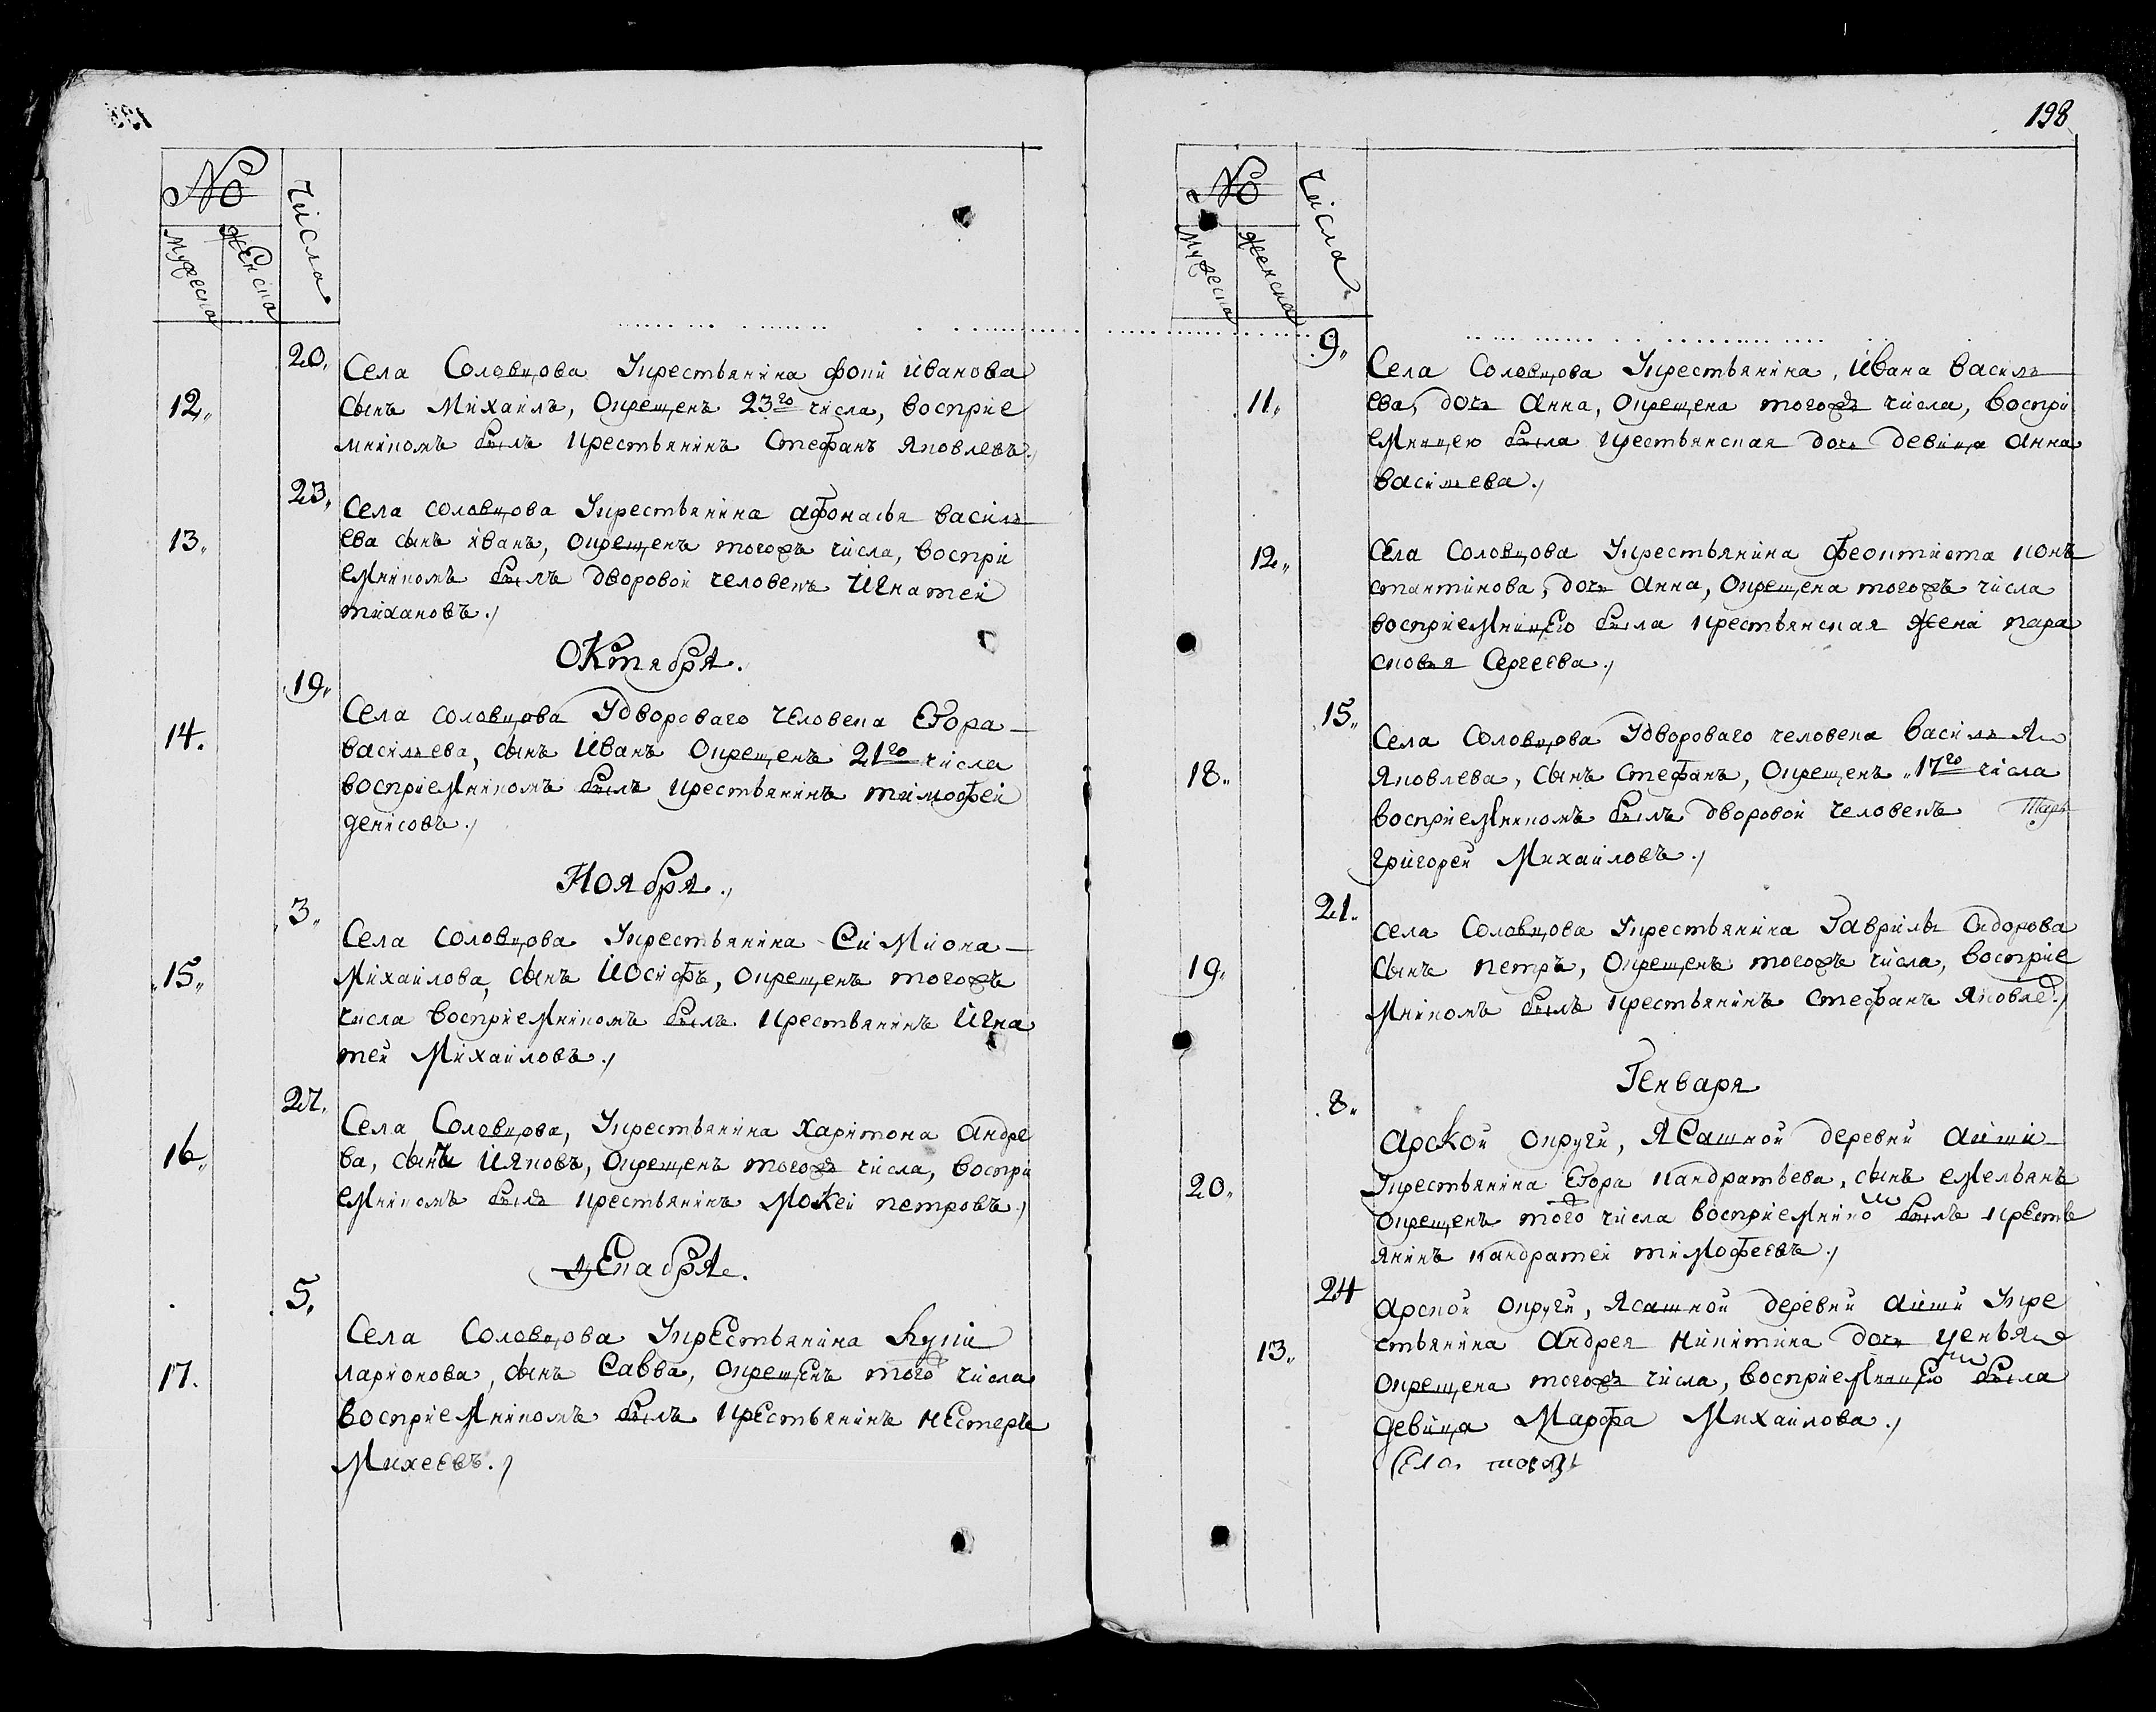 №
числа
мужеска
женска
20.
Села Соловцова Укрестьянина фоки иванова
12.
сынъ Михаилъ, Окрещенъ 23го числа, восприе
мникомъ былъ крестьянинъ Стефанъ яковлевъ.
23.
Села соловцова Укрестьянина афонасья василь
13.
ева сынъ иванъ, окрещенъ тогожъ числа, воспри
емникомъ былъ дворовой человекъ Игнатей
тихановъ.
Октября.
19.
Села соловцова Удвороваго человека Егора
14.
васильева, сынъ Иванъ Окрещенъ 21го числа
восприемникомъ былъ крестьянинъ тимофей
денисовъ.
Ноября.
3.
Села Соловцова Укрестьянина Симиона
15.
Михаилова, сынъ Иосифъ, окрещенъ тогожъ
числа восприемникомъ былъ крестьянинъ Игна
тей Михаиловъ.
27.
Села Соловцова, Укрестьянина харитона андре
16.
ва, сынъ Ияковъ, Окрещенъ тогожъ числа, воспри
емникомъ былъ крестьянинъ Мокей петровъ.
декабря.
5.
Села Соловцова Укрестьянина
17.
ларионова, сынъ Савва, окрещенъ того числа
восприемникомъ былъ крестьянинъ нестеръ
Михеевъ.
198
№
числа
мужеска
женска
9.
Села Соловцова Укрестьянина, Ивана василь
11.
ева, дочь Анна, окрещена тогожъ числа, воспри
емницею была крестьянская дочь девица Анна
васильева.
12.
Села Соловцова Укрестьянина феоктиста конъ
стантинова, дочь Анна, Окрещена тогожъ числа
восприемницею была крестьянская жена пара
сковья Сергеева.
15.
Села Соловцова Удвороваго человека василья
18.
яковлева, сынъ стефанъ, Окрещенъ 17го числа
восприемникомъ былъ дворовой человекъ
григорей Михаиловъ.
21.
села Соловцова Укрестьянина Гаврилы Сидорова
19.
сынъ петръ, Окрещенъ тогожъ числа, восприе
мникомъ былъ крестьянинъ стефанъ яковле.
Генваря
8.
Арской округи, ясашной деревни Аиши
20.
Укрестьянина Егора кандратьева, сынъ емельянъ
окрещенъ того числа восприемником былъ кресть
янинъ кандратей тимофеевъ.
24
арской округи, ясашной деревни Аиши Укре
13.
стьянина Андрея никитина дочь
окрещена тогожъ числа, восприемницею была
девица Марфа Михаилова.
Села